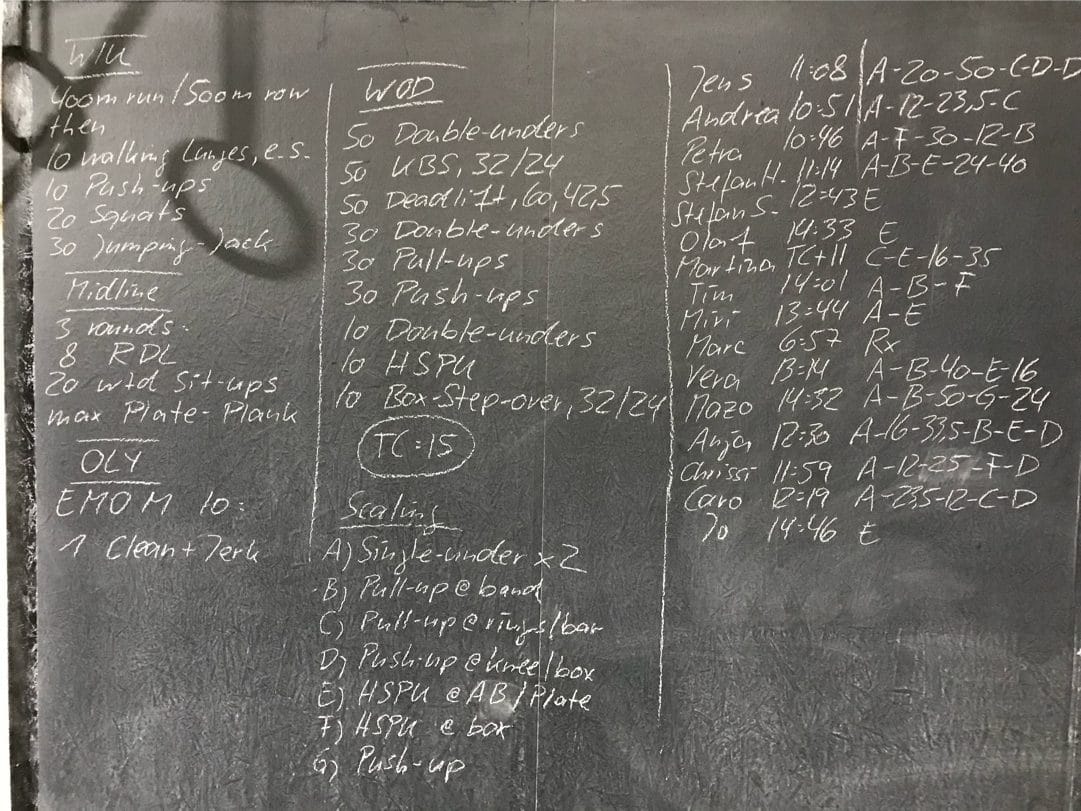 W/U
400m run/500m row
then
10 walking lunges, e.s.
10 Push-ups
20 Squats
30 Jumping-Jack
Midline
3 rounds:
8 RDL
20 wtd Sit-ups
max Plate-Plank
OLY
EMOM 10:
1 Clean+Jerk
WOD
50 Double-unders
50 KBS, 32/24
50 Deadlift, 60, 42,5
30 Double-unders
30 Pull-ups
30 Push-ups
10 Double-unders
10 HSPU
10 Box-Step-over, 32/24
TC=15
Scaling
A) Single-under x2
B) Pull-up @ band
C) Pull-up @ rings/bar
D) Push-up @ knee/box
E) HSPU @ AB/Plate
F) HSPU @ box
G) Push-up
Jens 11:08 A-20-50-C-D-D
Andrea 10:51 A-12-23,5-C
Petra 10:46 A-F-30-12-B
Stefan H. 11:14 A-B-E-24-40
Stefan S. 12:43 E
Olaf 14:33 E
Martina TC+11 C-E-16-35
Tim 14:01 A-B-F
Miri 13:44 A-E
Marc 6:57 Rx
Vera 13:14 A-B-40-E-16
Mazo 14:32 A-B-50-G-24
Anja 12:30 A-16-33,5-B-E-D
Chrissi 11:59 A-12-25-F-D
Caro 12:19 A-23,5-12-C-D
Jo 14:46 E